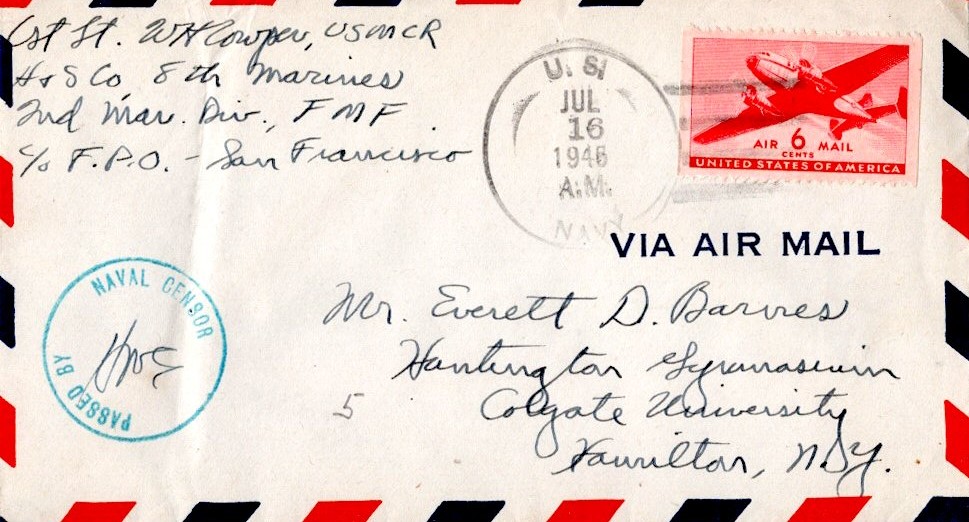 1st Lt. W H Cowper, USMCR
H & S Co, 8th Marines
2nd Mar. Div., F M F
c/o F.P.O. - San Francisco
U. S.
JUL
16
1945
A.M.
NAVY
AIR 6 MAIL
CENTS
UNITED STATES OF AMERICA
VIA AIR MAIL
NAVAL CENSOR
PASSED BY
Mr. Everett D. Barnes
Huntington Gymnasium
5
Colgate University
Hamilton, N.Y.